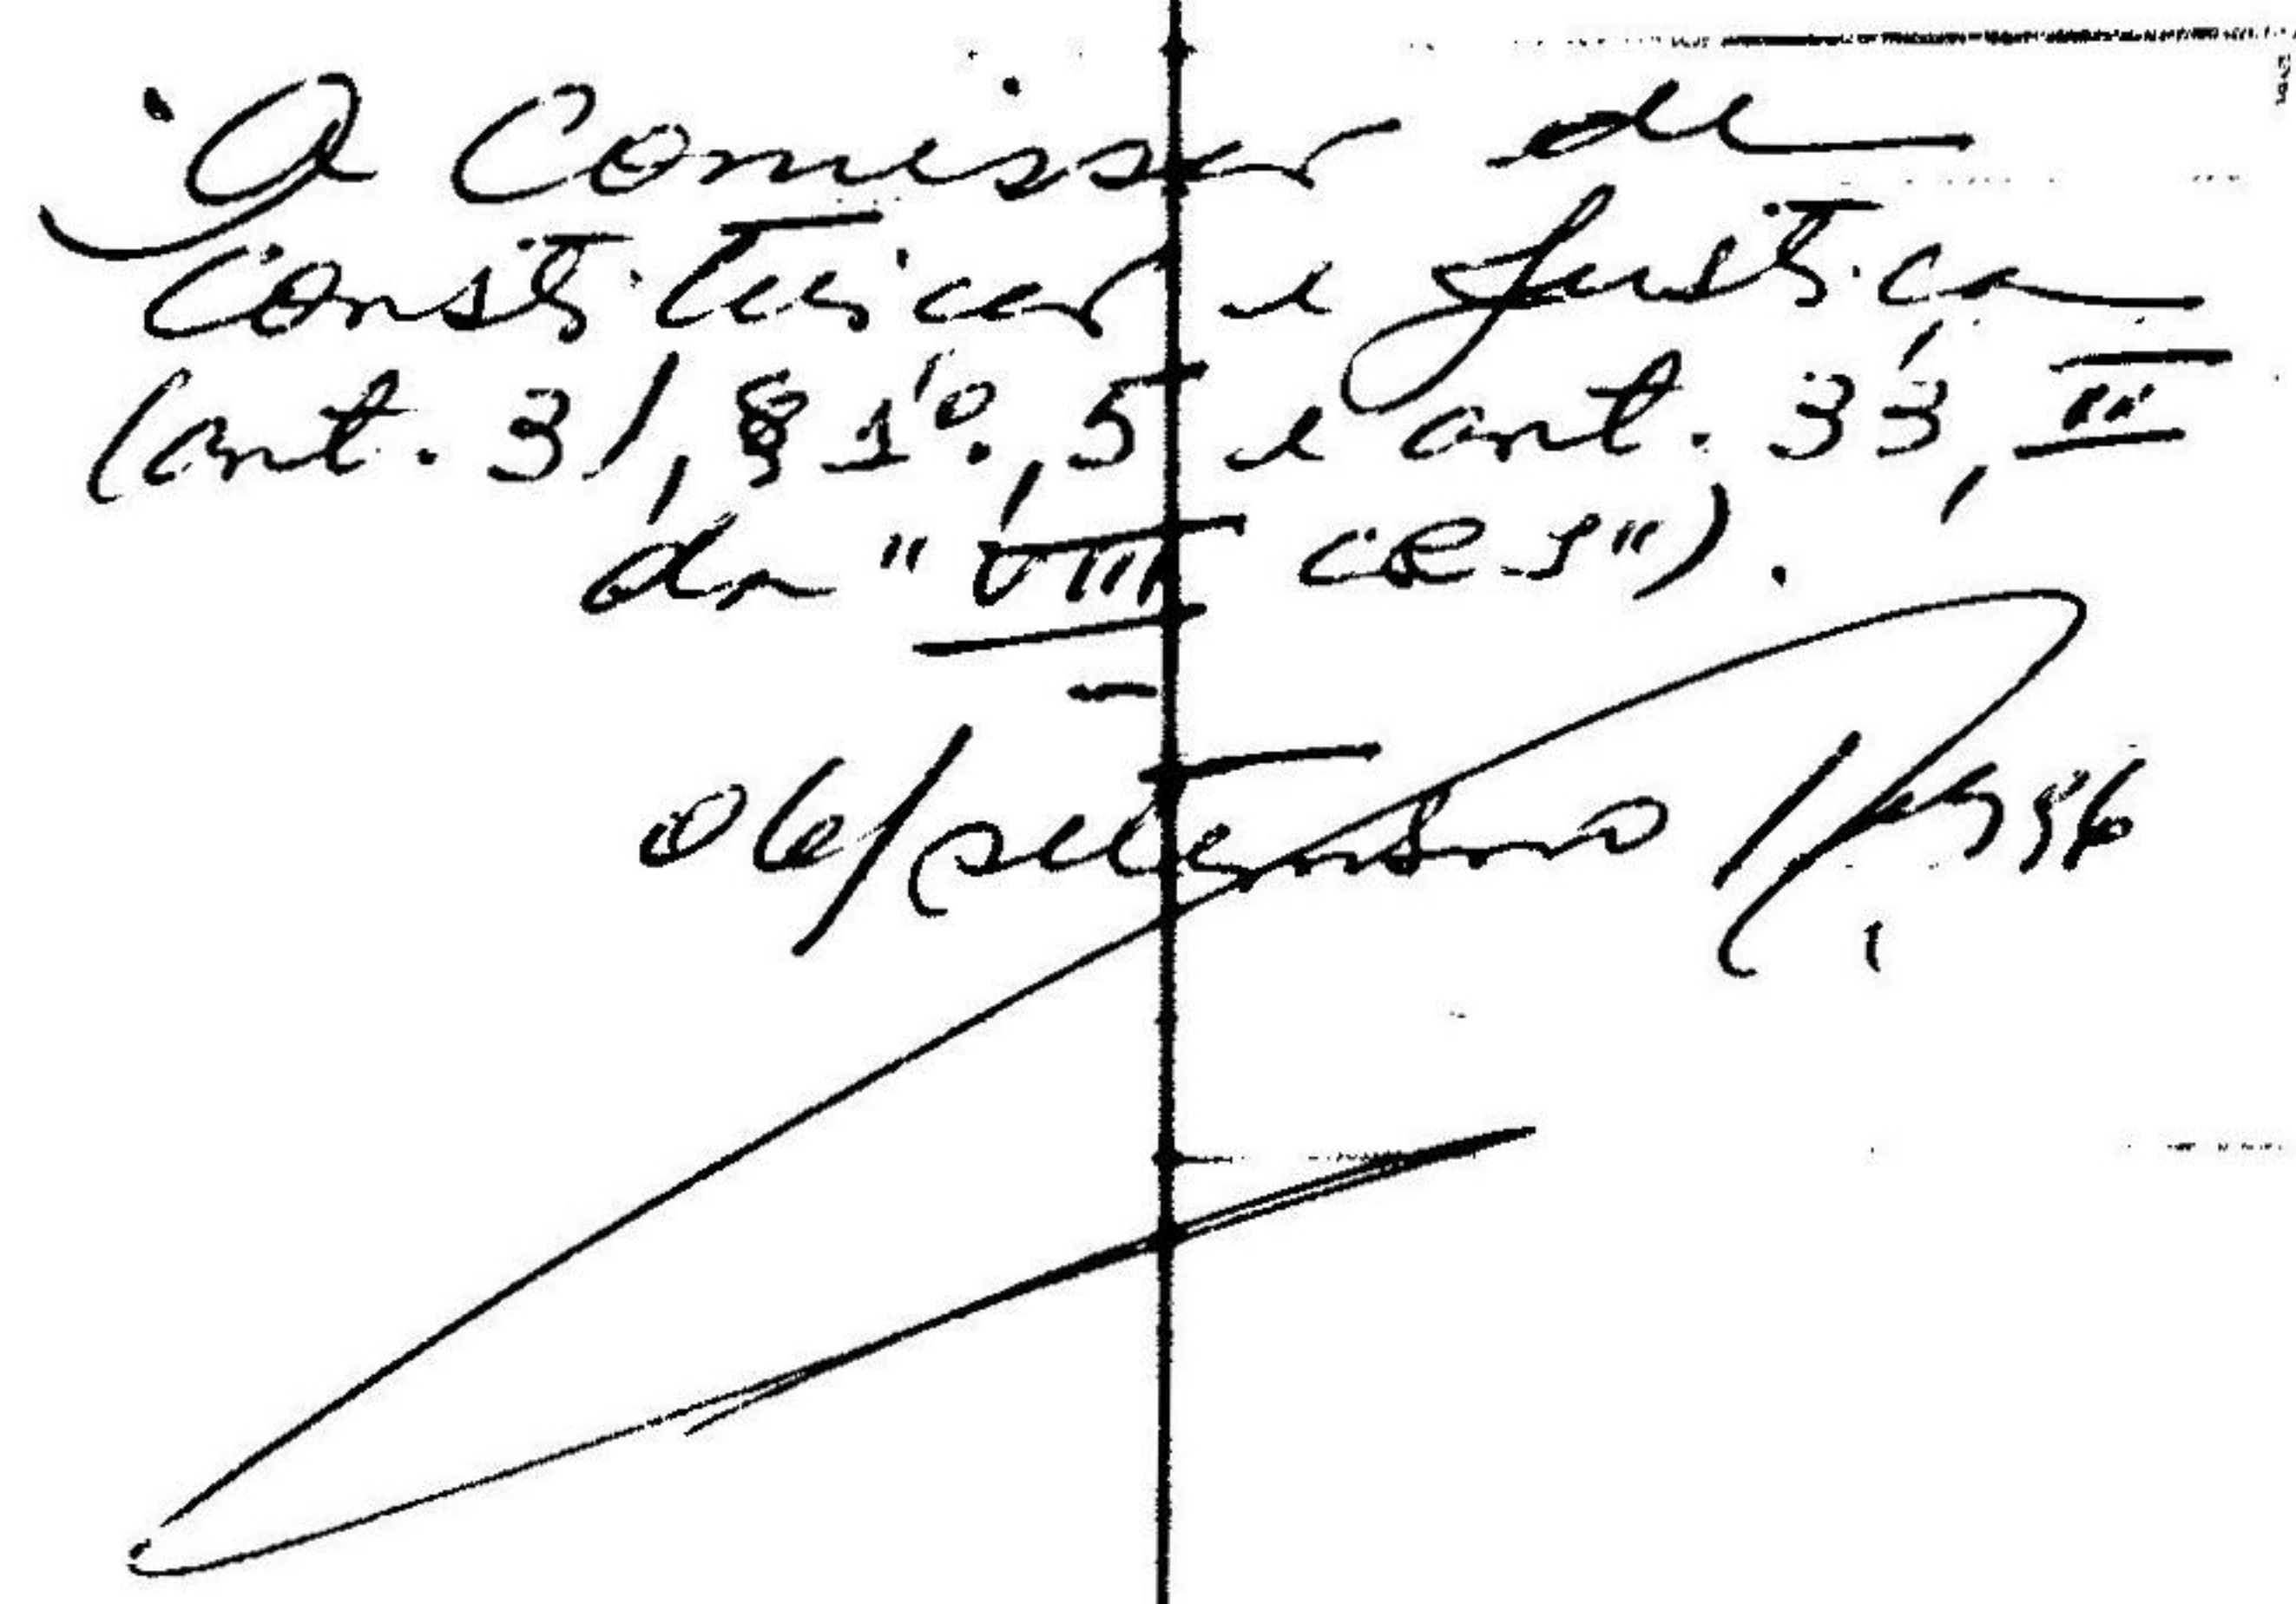 À Comissão de
Constituição e Justiça
(art. 31, § 1º, 5 e art. 33, II
da "VIII CRJ").
06/setembro/1996